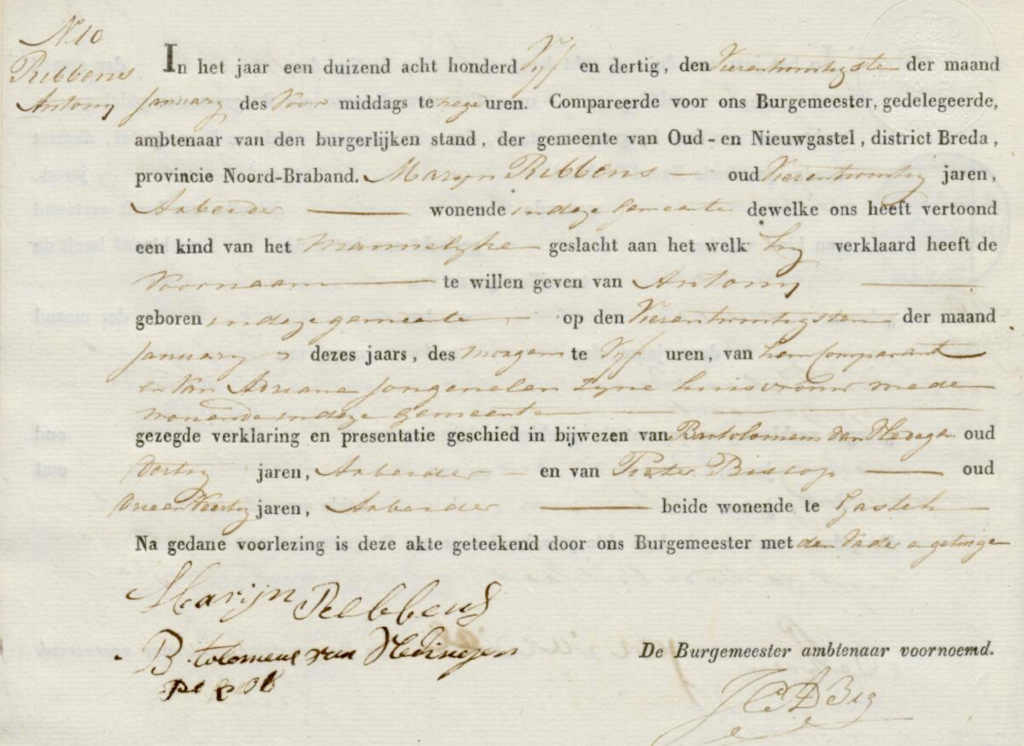 N 10
Ribbens
Antony
In het jaar een duizend acht honderd Vyf en dertig, den Vierentwintigsten der maand
January des Voor middags te negen uren. Compareerde voor ons Burgemeester, gedelegeerde,
ambtenaar van den burgerlijken stand, der gemeente van Oud- en Nieuwgastel, district Breda,
provincie Noord-Braband. Maryn Ribbens oud Vierentwintig jaren,
Arbeider wonende in deze gemeente dewelke ons heeft vertoond
een kind van het Mannelyke geslacht aan het welk hy verklaard heeft de
Voornaam te willen geven van Antony
geboren in deze gemeente op den Vierentwintigsten der maand
January dezes jaars, des morgens te Vyf uren, van hem Comparant
en Van Adriana Jongenelen Zyne huisvrouw mede
wonende in deze gemeente
gezegde verklaring en presentatie geschied in bijwezen van Bartolomeus van oud
dertig jaren, Arbeider en van Pieter Biscop oud
jaren, Arbeider beide wonende te Gastel
Na gedane voorlezing is deze akte geteekend door ons Burgemeester met den Vader en getuigen
Marijn Rebbens
B tolomeus van
De Burgemeester ambtenaar voornoemd.